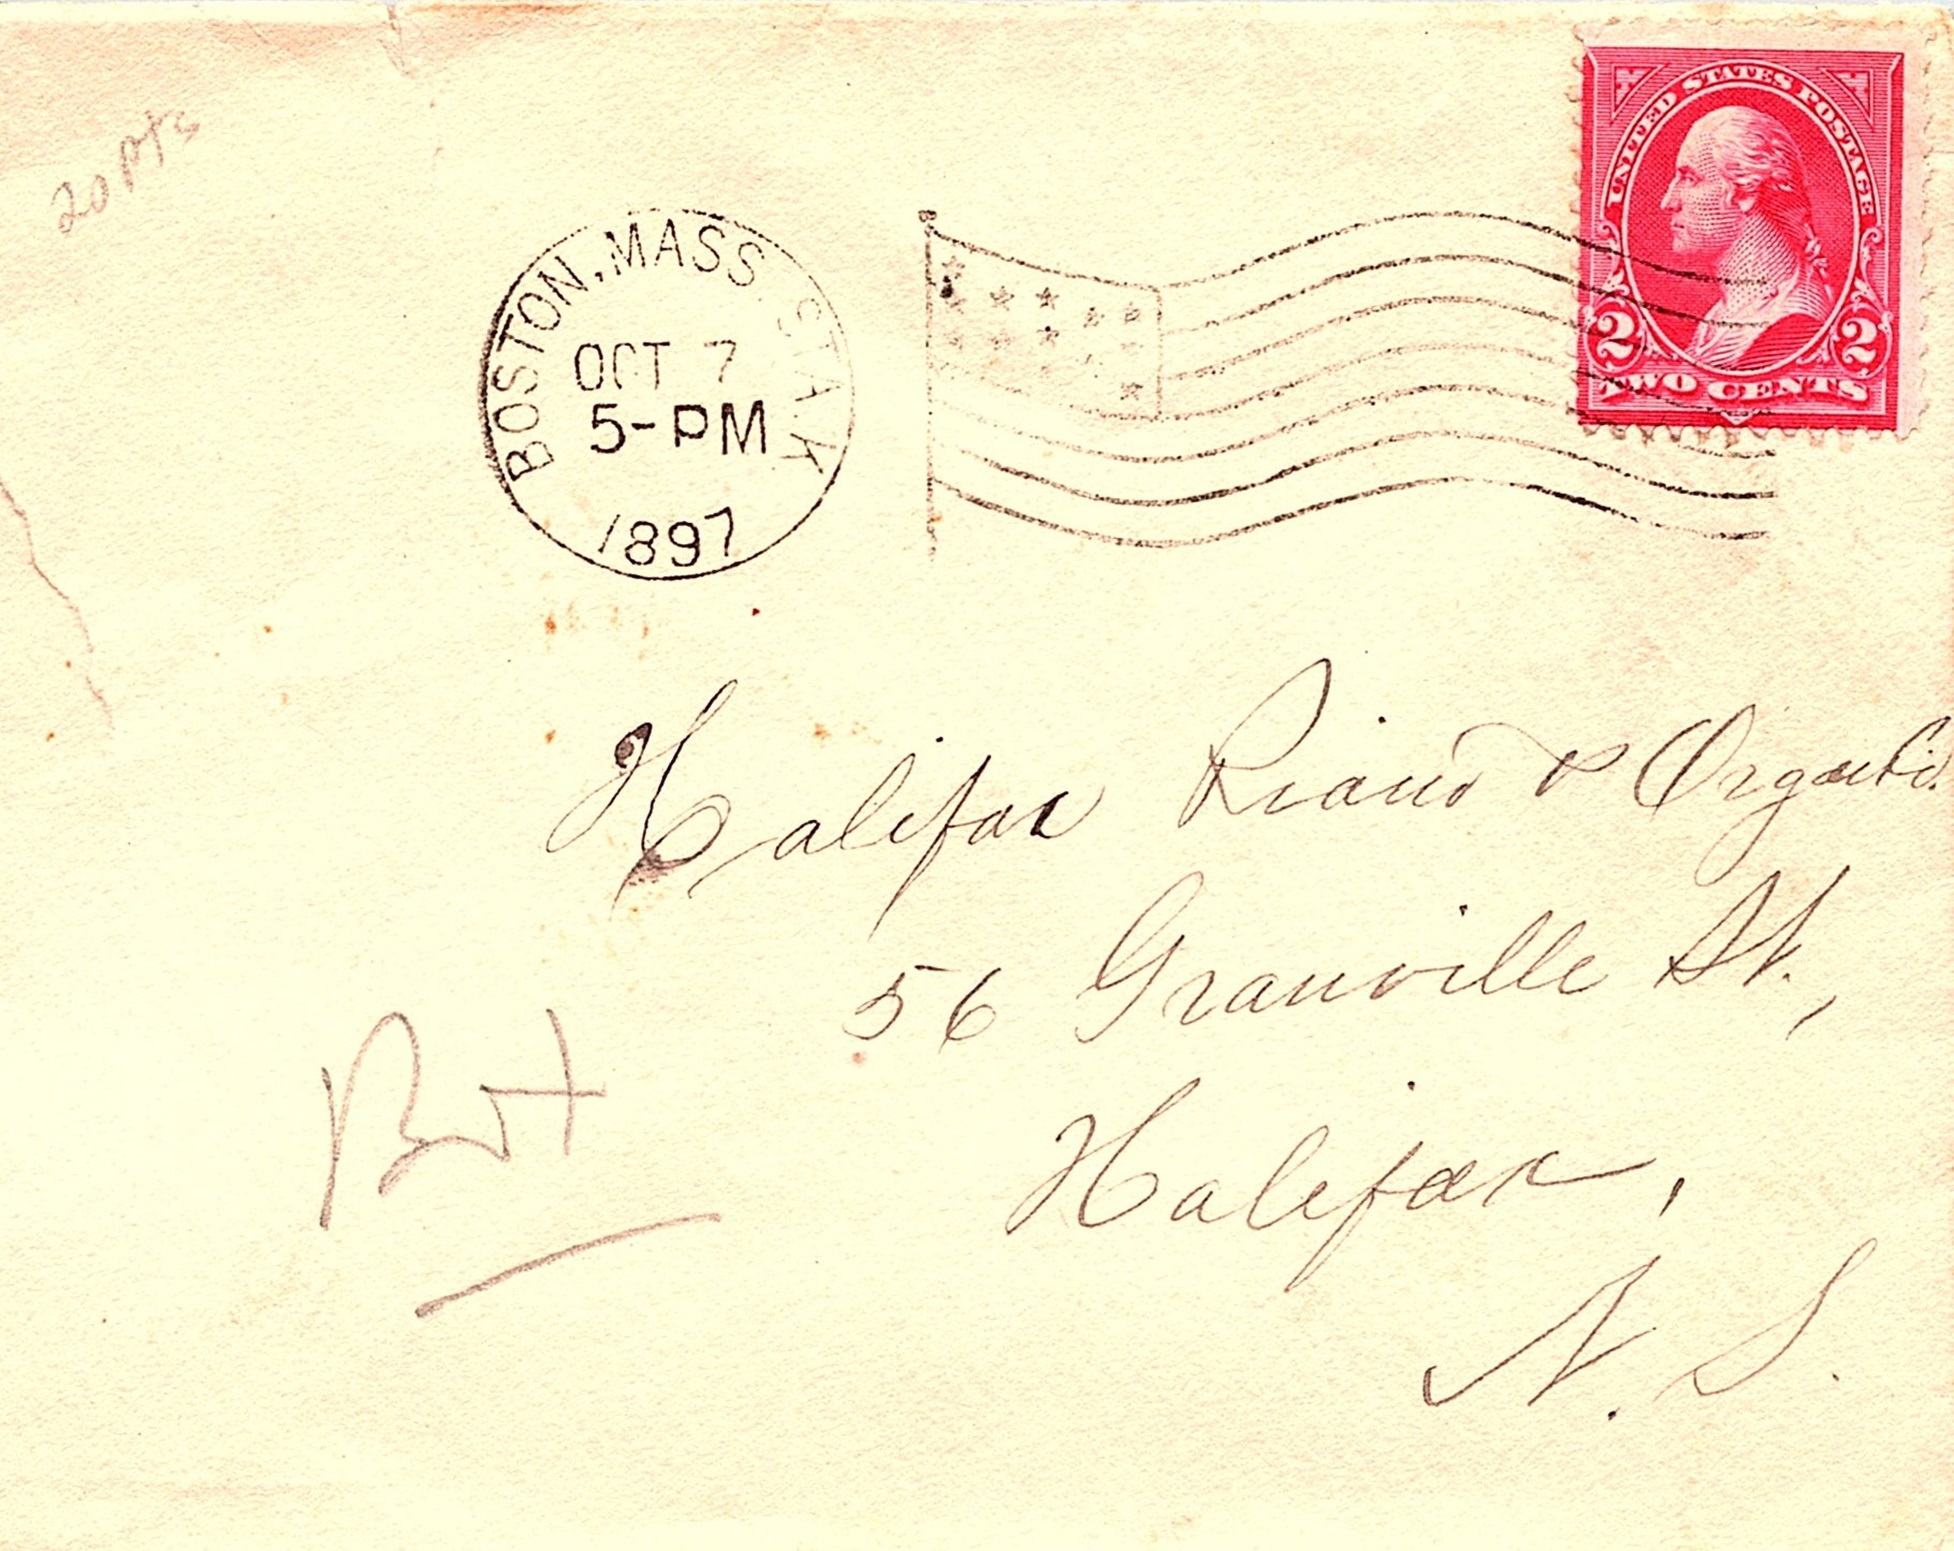 20 pts
UNITED STATES POSTAGE
2 2
TWO CENTS
BOSTON, MASS. STA. K
OCT 7
5-PM
1897
Halifax Piano & Organ Co.
56 Granville St.,
Halifax,
N. S.